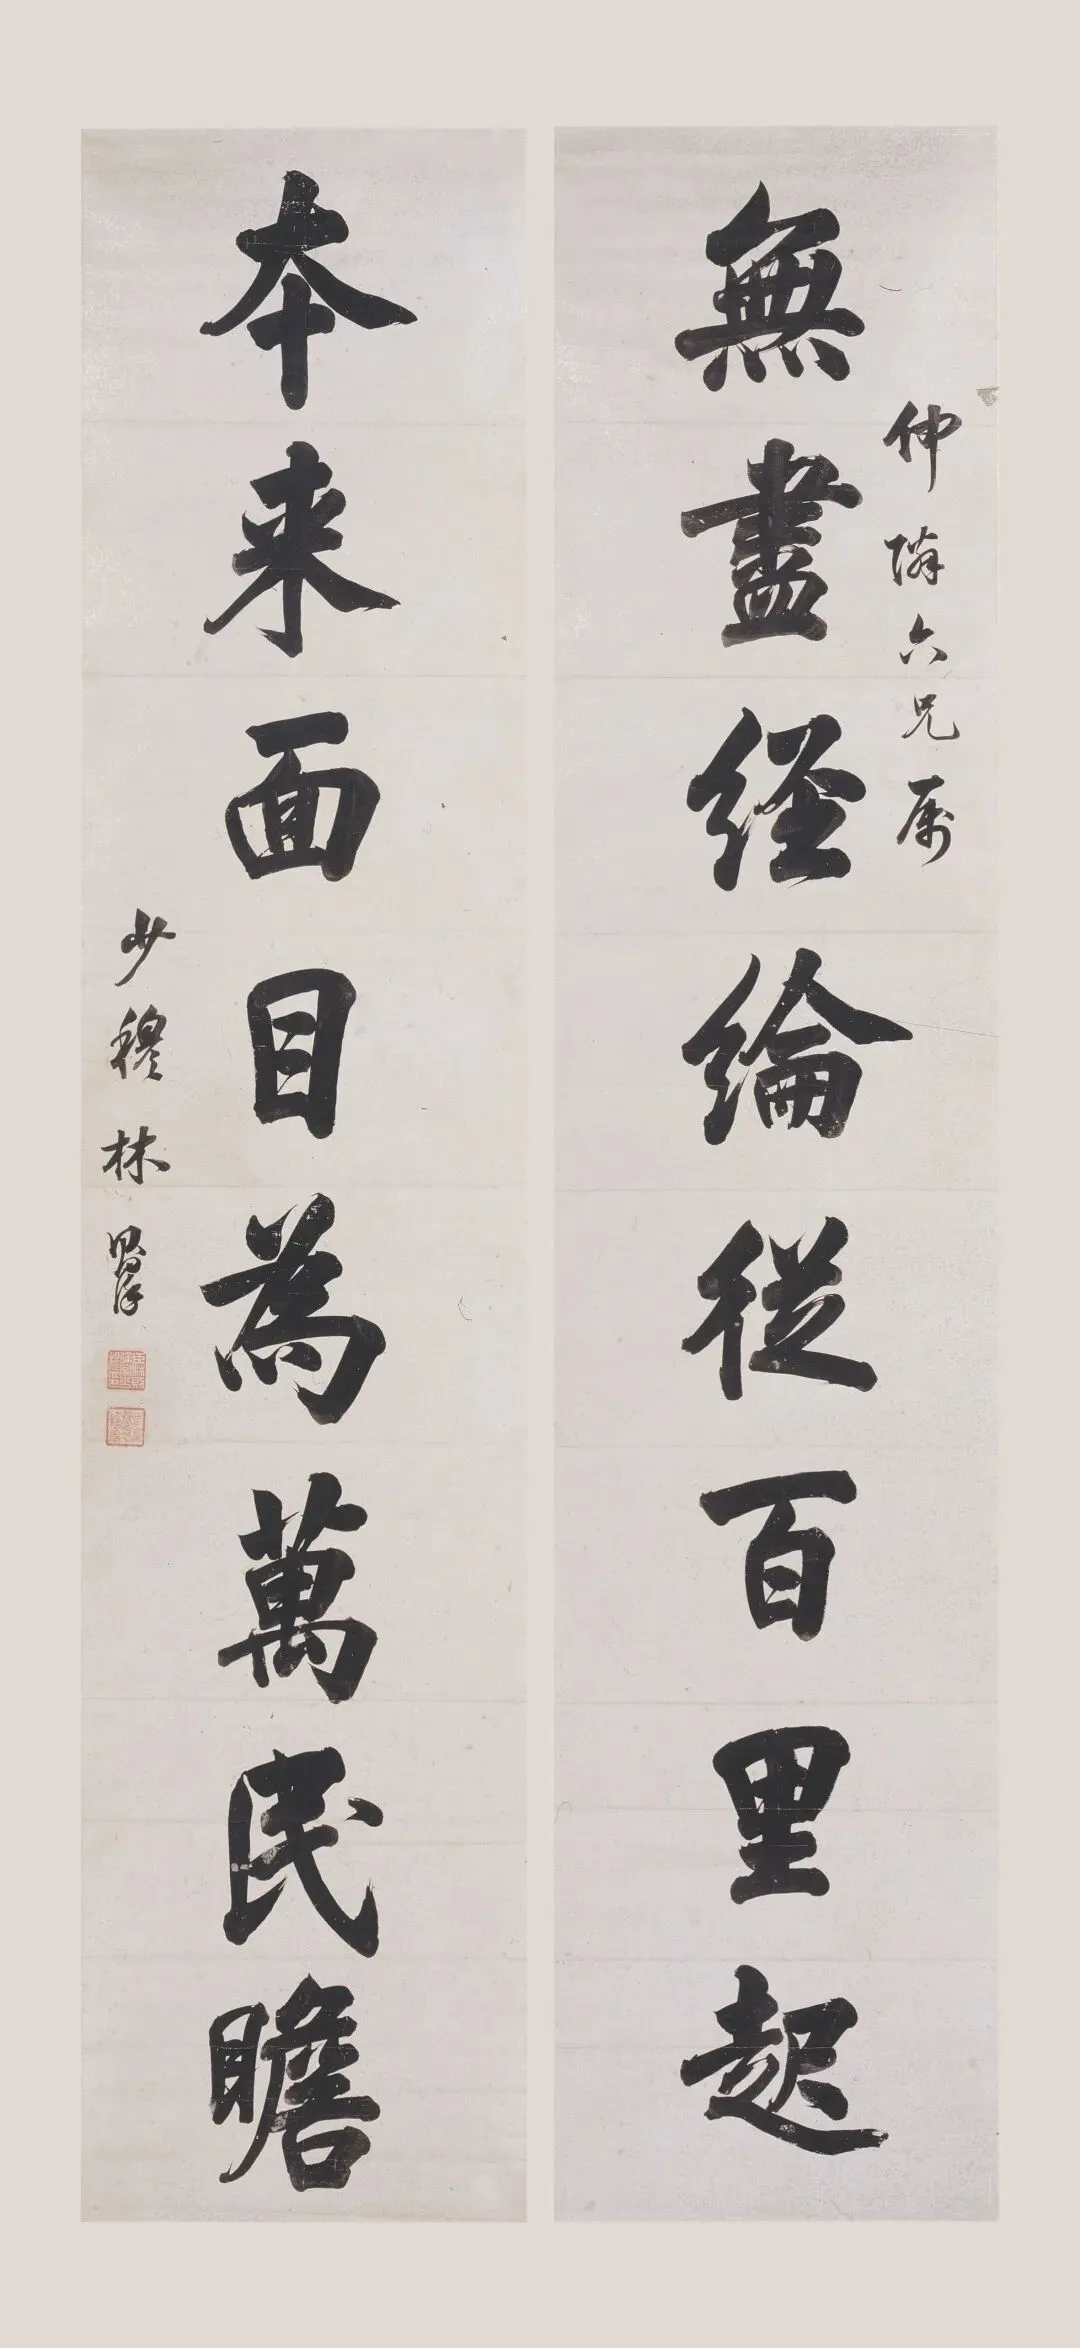 仲隣六兄属
無盡經綸從百里起
本来面目為萬民瞻
少穆林則徐